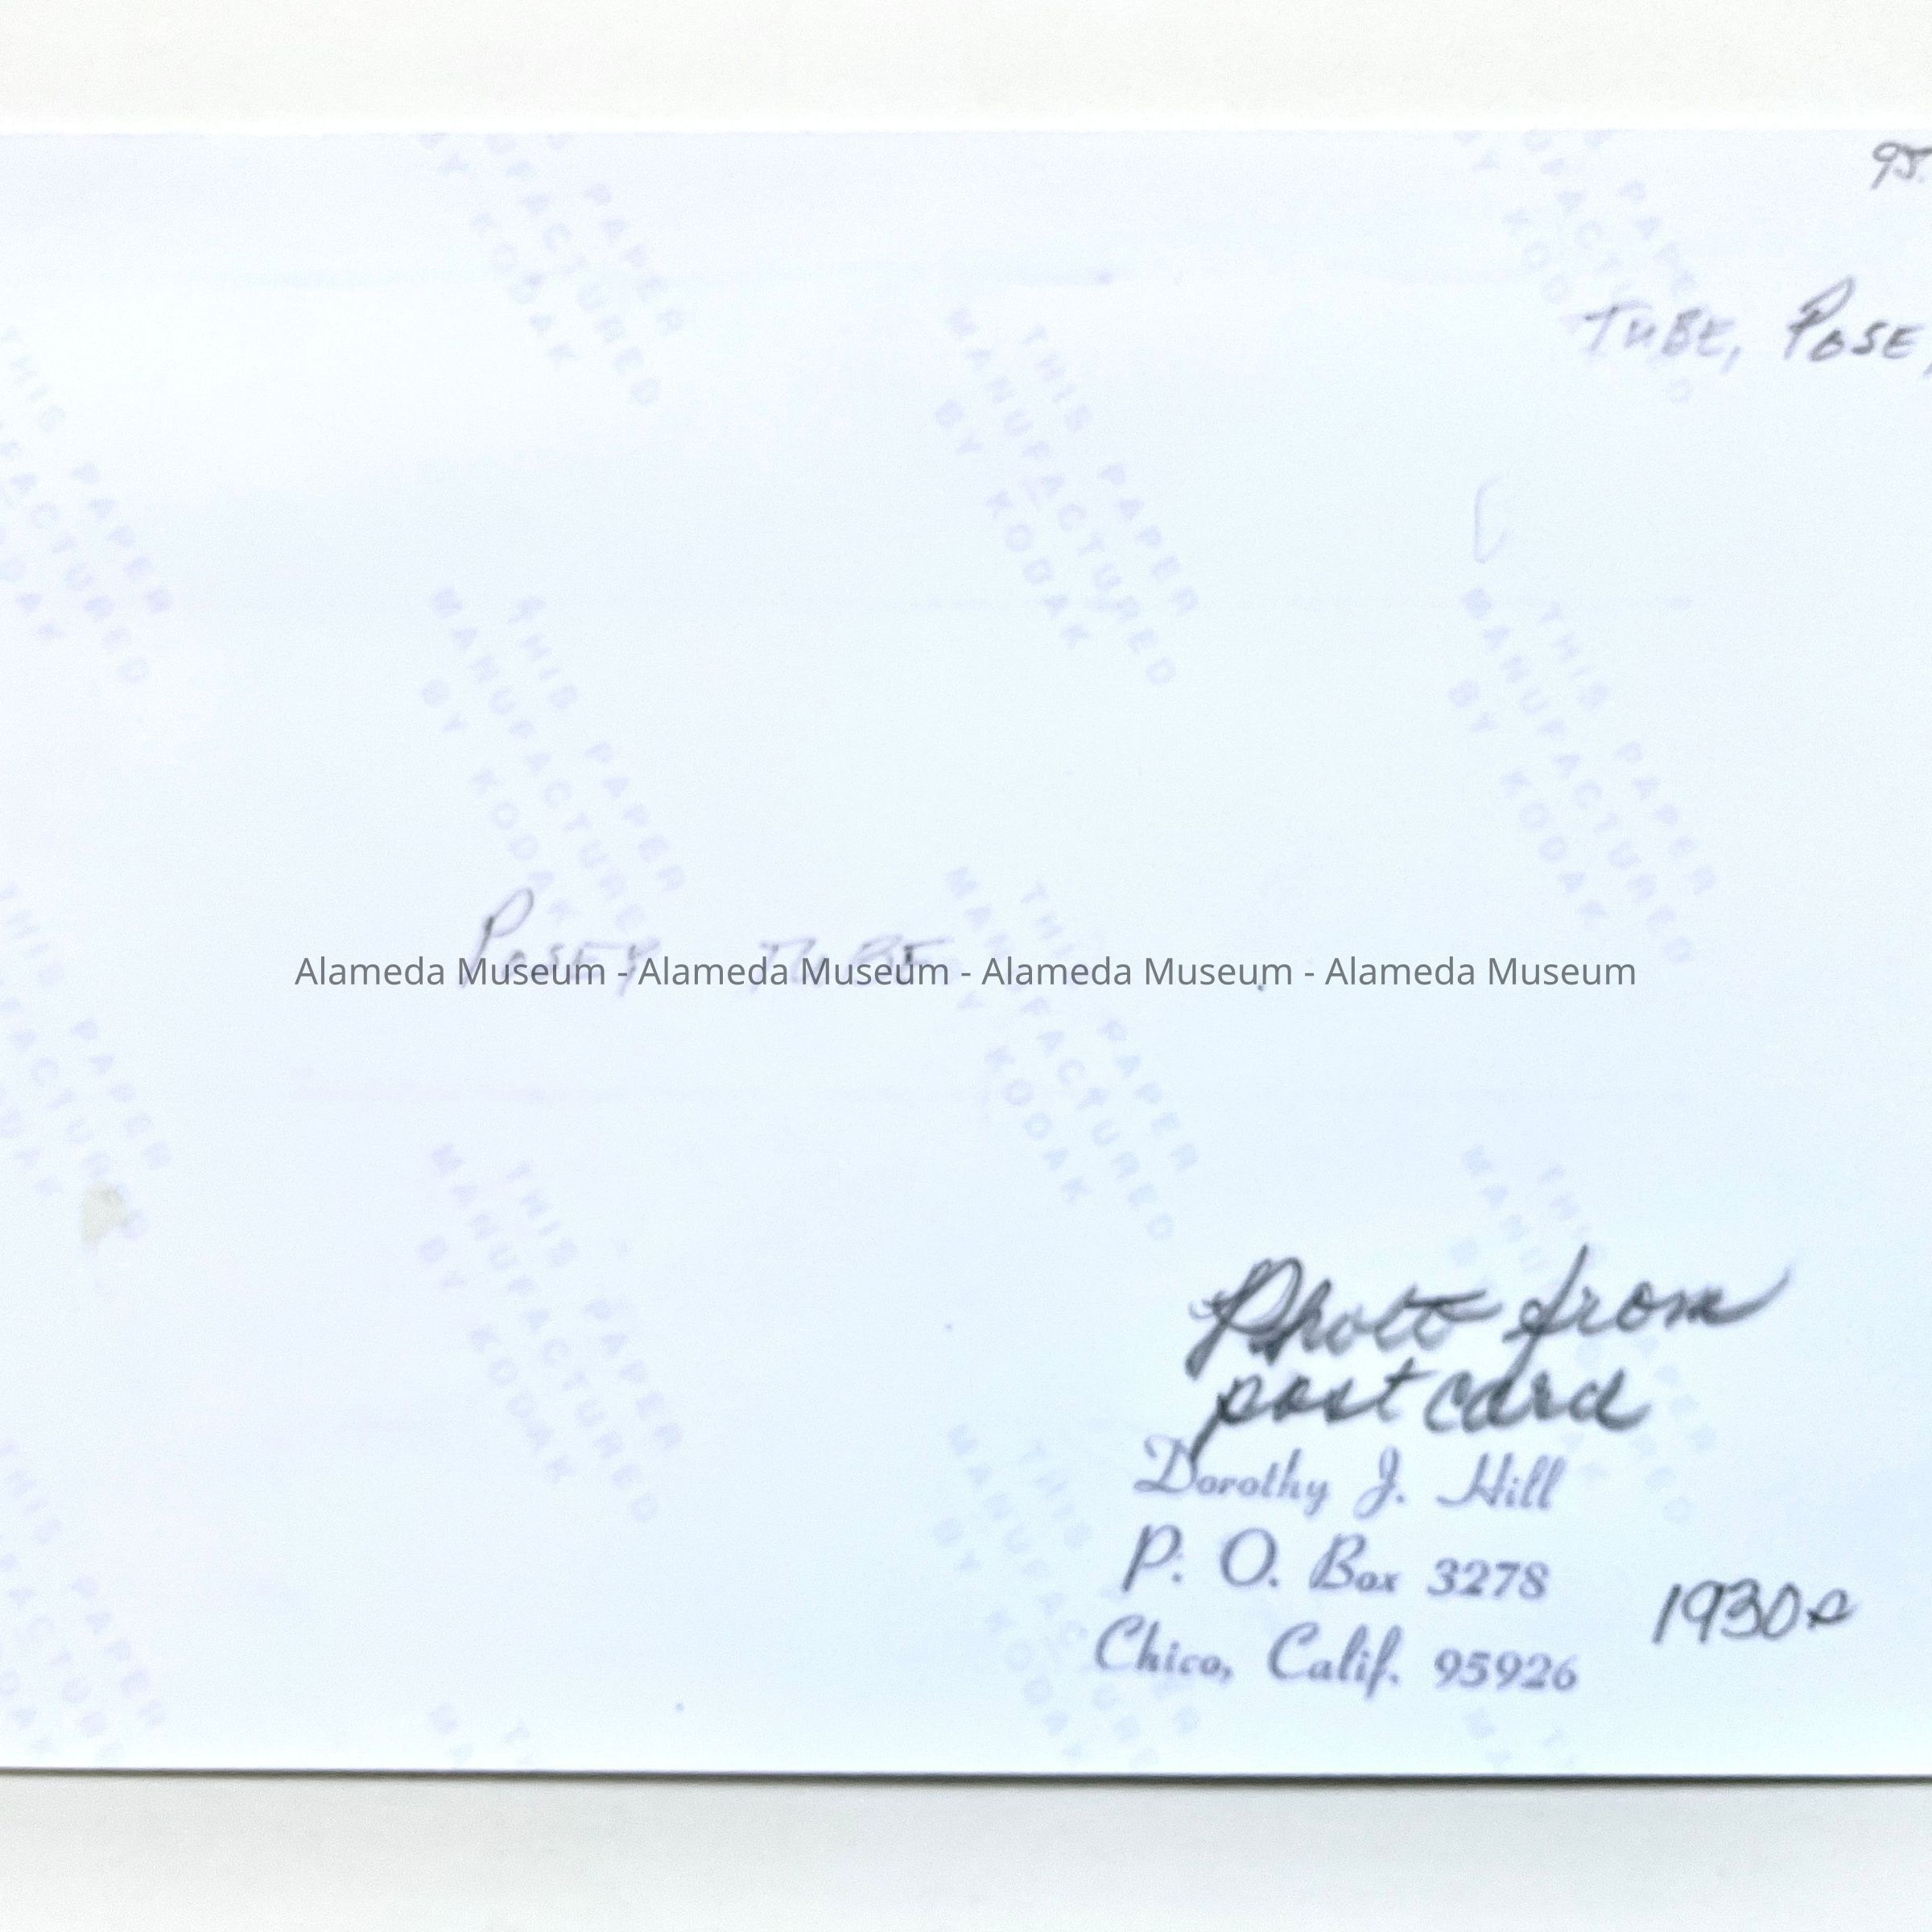 95.
TUBE, POSE
POSEY TUBE
Alameda Museum - Alameda Museum - Alameda Museum - Alameda Museum
Photo from
post card
Dorothy J. Hill
P. O. Box 3278
Chico, Calif. 95926
1930s
THIS PAPER
MANUFACTURED
BY KODAK